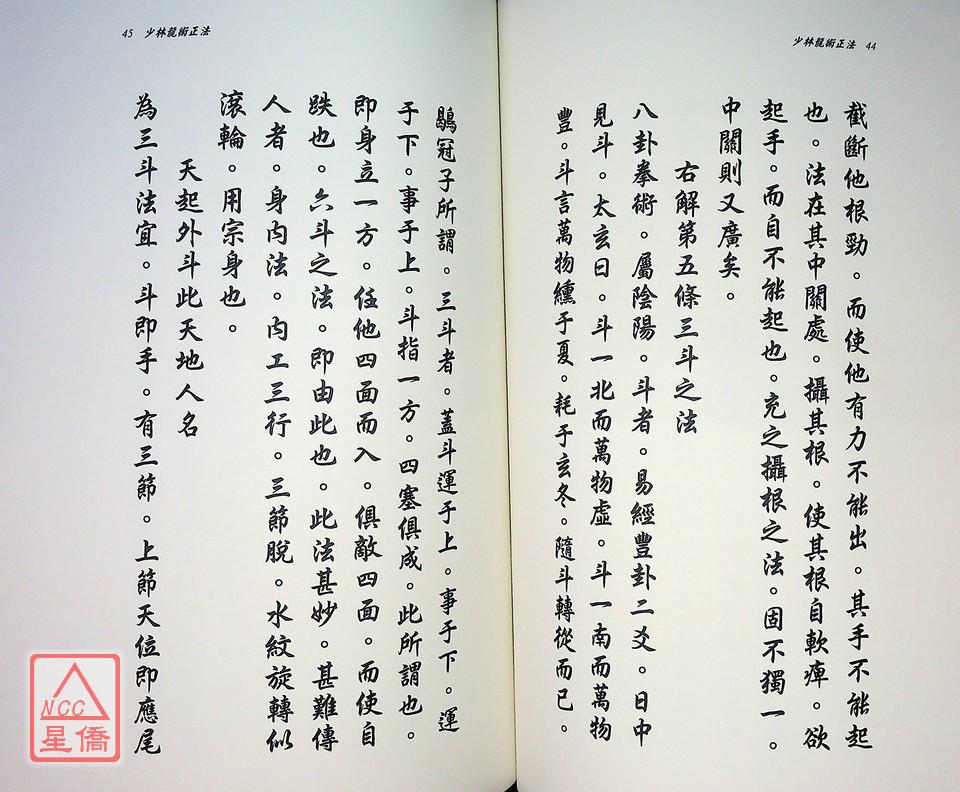 少林龍術正法 44
截斷他根勁。而使他有力不能出。其手不能起
也。法在其中關處。攝其根。使其根自軟痺。欲
起手。而自不能起也。充之攝根之法。固不獨一。
中關則又廣矣。
右解第五條三斗之法
八卦拳術。屬陰陽。斗者。易經豐卦二爻。日中
見斗。太玄曰。斗一北而萬物虛。斗一南而萬物
豐。斗言萬物纁于夏。耗于玄冬。隨斗轉從而已。
45 少林龍術正法
鶡冠子所謂。三斗者。蓋斗運于上。事于下。運
于下。事于上。斗指一方。四塞俱成。此所謂也。
即身立一方。任他四面而入。俱敵四面。而使自
跌也。六斗之法。即由此也。此法甚妙。甚難傳
人者。身内法。内工三行。三節脫。水紋旋轉似
滾輪。用宗身也。
天起外斗此天地人名
為三斗法宜。斗即手。有三節。上節天位即應尾
NCC
星僑